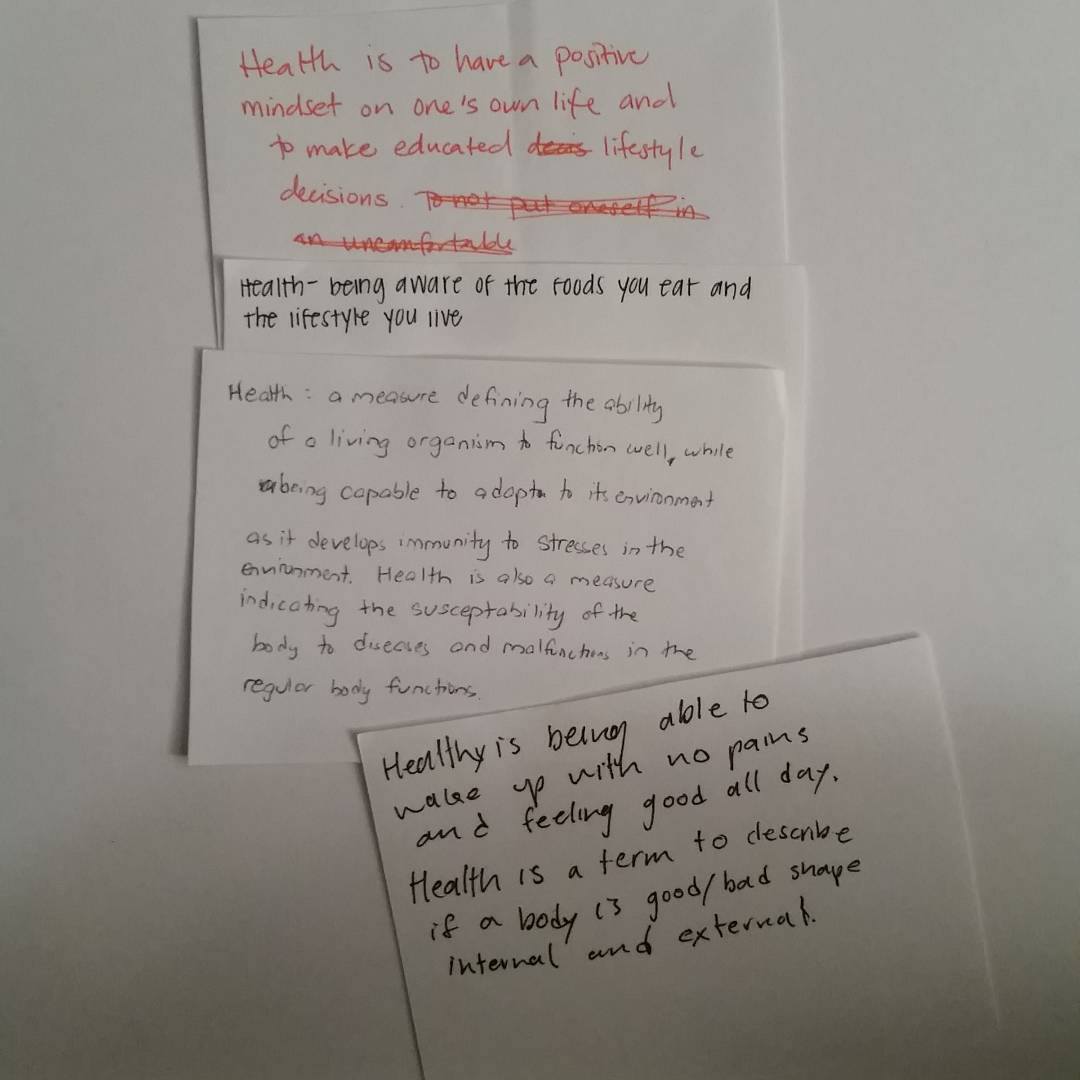 Health is to have a positive
mindset on one's own life and
to make educated decis lifestyle
decisions. To not put oneself in
an uncomfortable
Health- being aware of the foods you eat and
the lifestyle you live
Health : a measure defining the ability
of a living organism to function well, while
being capable to adapt to its environment
as it develops immunity to stresses in the
environment. Health is also a measure
indicating the susceptability of the
body to diseases and malfunctions in the
regular body functions.
Healthy is being able to
wake up with no pains
and feeling good all day.
Health is a term to describe
if a body is good/bad shape
internal and external.